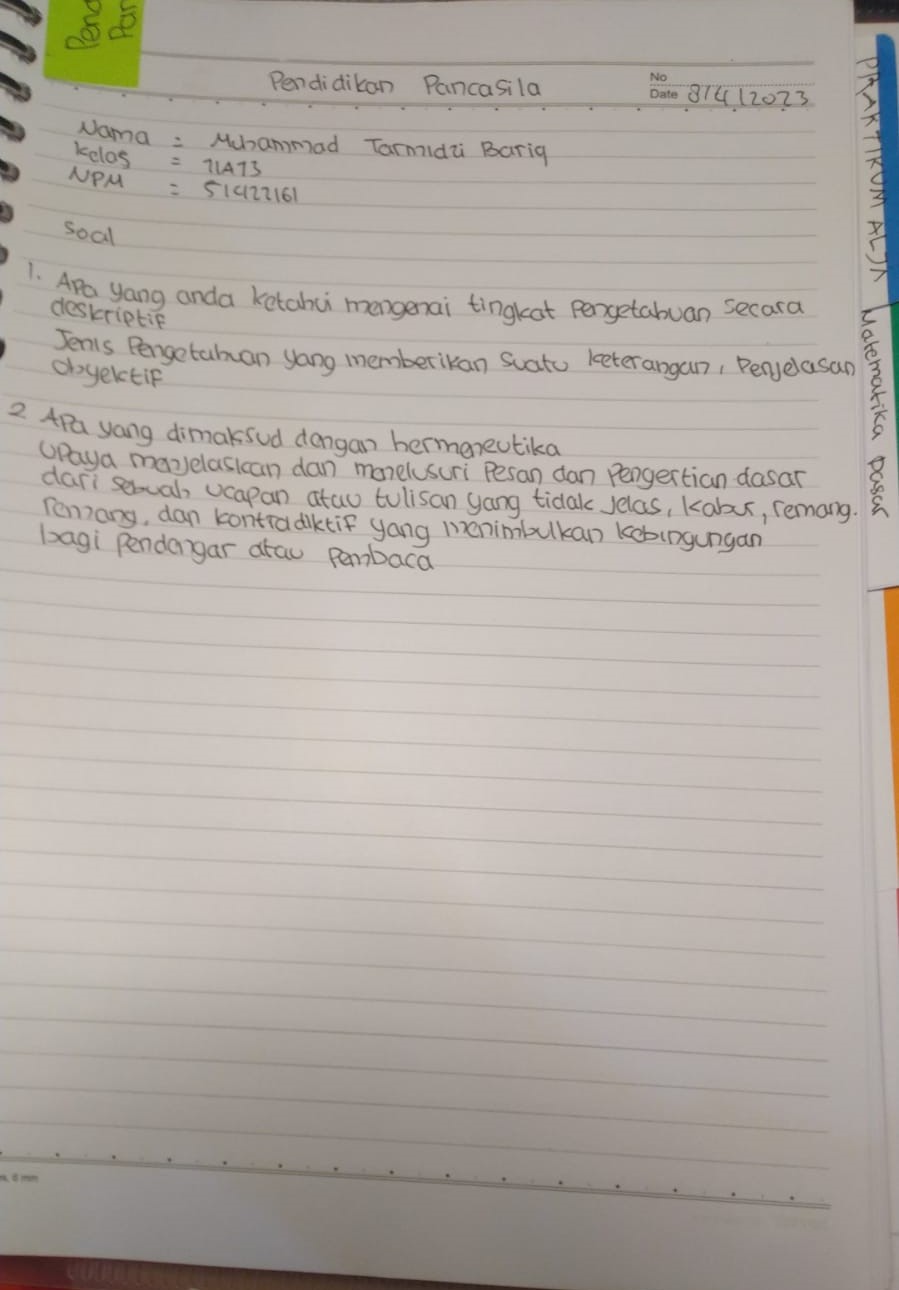 Pend
Pan
Pendidikan Pancasila
No
Date 3/4/2023
Nama = Muhammad Tarmidzi Bariq
Kelas = 1IA13
NPM = 51422161
Soal
1. Apa yang anda ketahui mengenai tingkat Pengetahuan Secara
deskriptif
Jenis Pengetahuan yang memberikan Suatu keterangan, Penjelasan
obyektif
2 Apa yang dimaksud dengan hermeneutika
Upaya menjelaskan dan menelusuri Pesan dan Pengertian dasar
dari sebuah ucapan atau tulisan yang tidak jelas, kabur, remang.
remang, dan kontradiktif yang menimbulkan kebingungan
bagi Pendengar atau Pembaca
PRAKTIKUM ALJA
Matematika Dasar